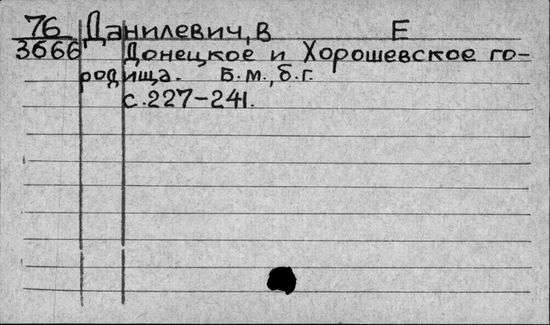 76 Данилевич, В Е
3666 Донецкое и Хорошевское го-
родища. Б.м., б.г.
с. 227-241.